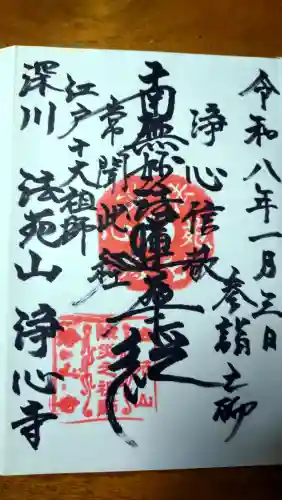 令和八年一月三日
奉詣之砌
浄心信敬
南無妙法蓮華経
常聞此経
江戸十大祖師
深川 法苑山 浄心寺